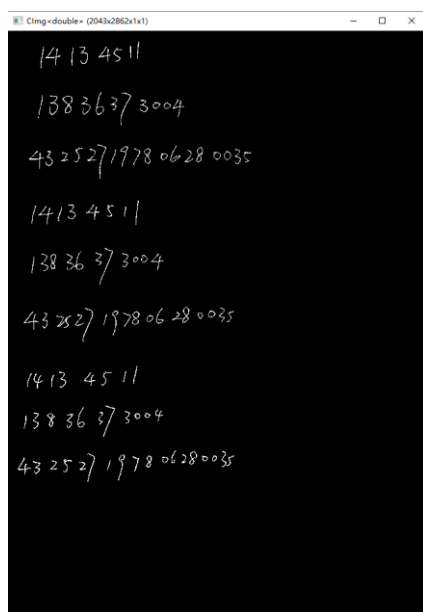 CImg<double> (2043x2862x1x1)
14 13 4511
13836373004
432527197806280035
1413 4511
13836 373004
43 2527 197806 280035
1413 4511
13836 373004
432527 197806280035